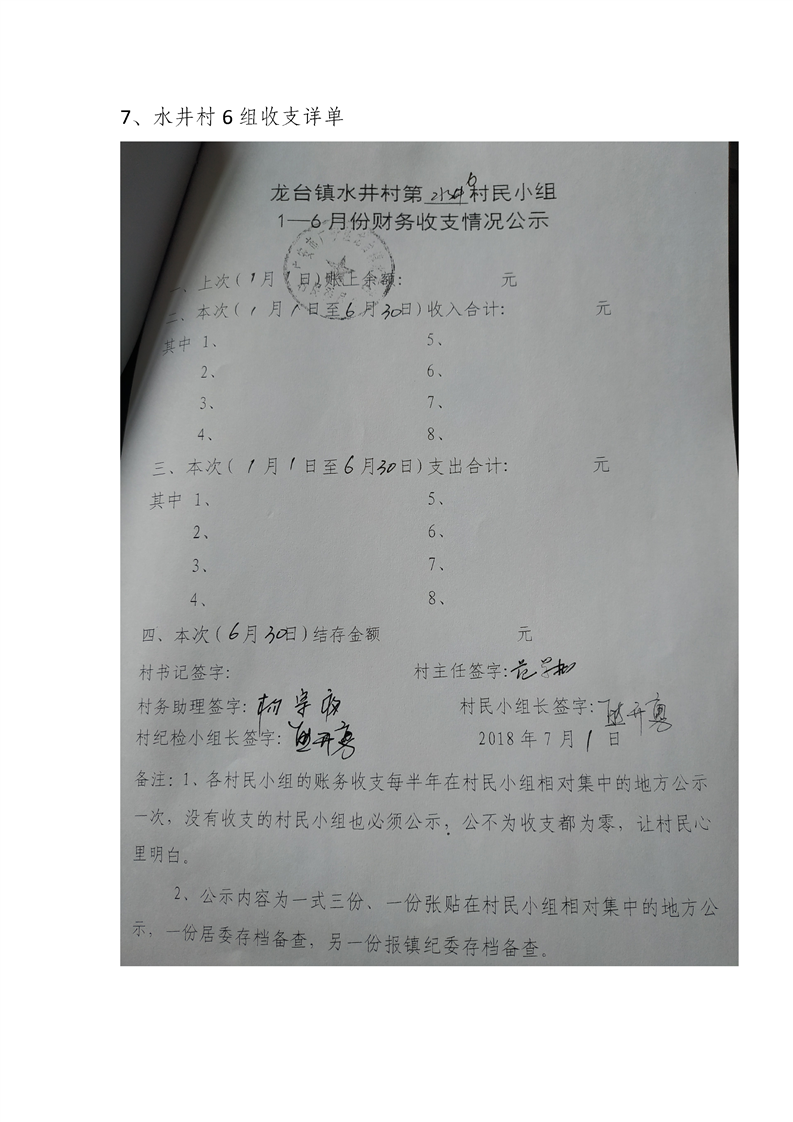 7、水井村6组收支详单
龙台镇水井村第水井6村民小组
1—6月份财务收支情况公示
一、上次(1月1日)账上余额: 元
二、本次(1月1日至6月30日)收入合计: 元
其中 1、 5、
2、 6、
3、 7、
4、 8、
三、本次(1月1日至6月30日)支出合计: 元
其中 1、 5、
2、 6、
3、 7、
4、 8、
四、本次(6月30日)结存金额 元
村书记签字: 村主任签字:
村务助理签字: 村民小组长签字:
村纪检小组长签字: 2018年7月1日
备注:1、各村民小组的账务收支每半年在村民小组相对集中的地方公示
一次,没有收支的村民小组也必须公示,公不为收支都为零,让村民心
里明白。
2、公示内容为一式三份、一份张贴在村民小组相对集中的地方公
示,一份居委存档备查,另一份报镇纪委存档备查。